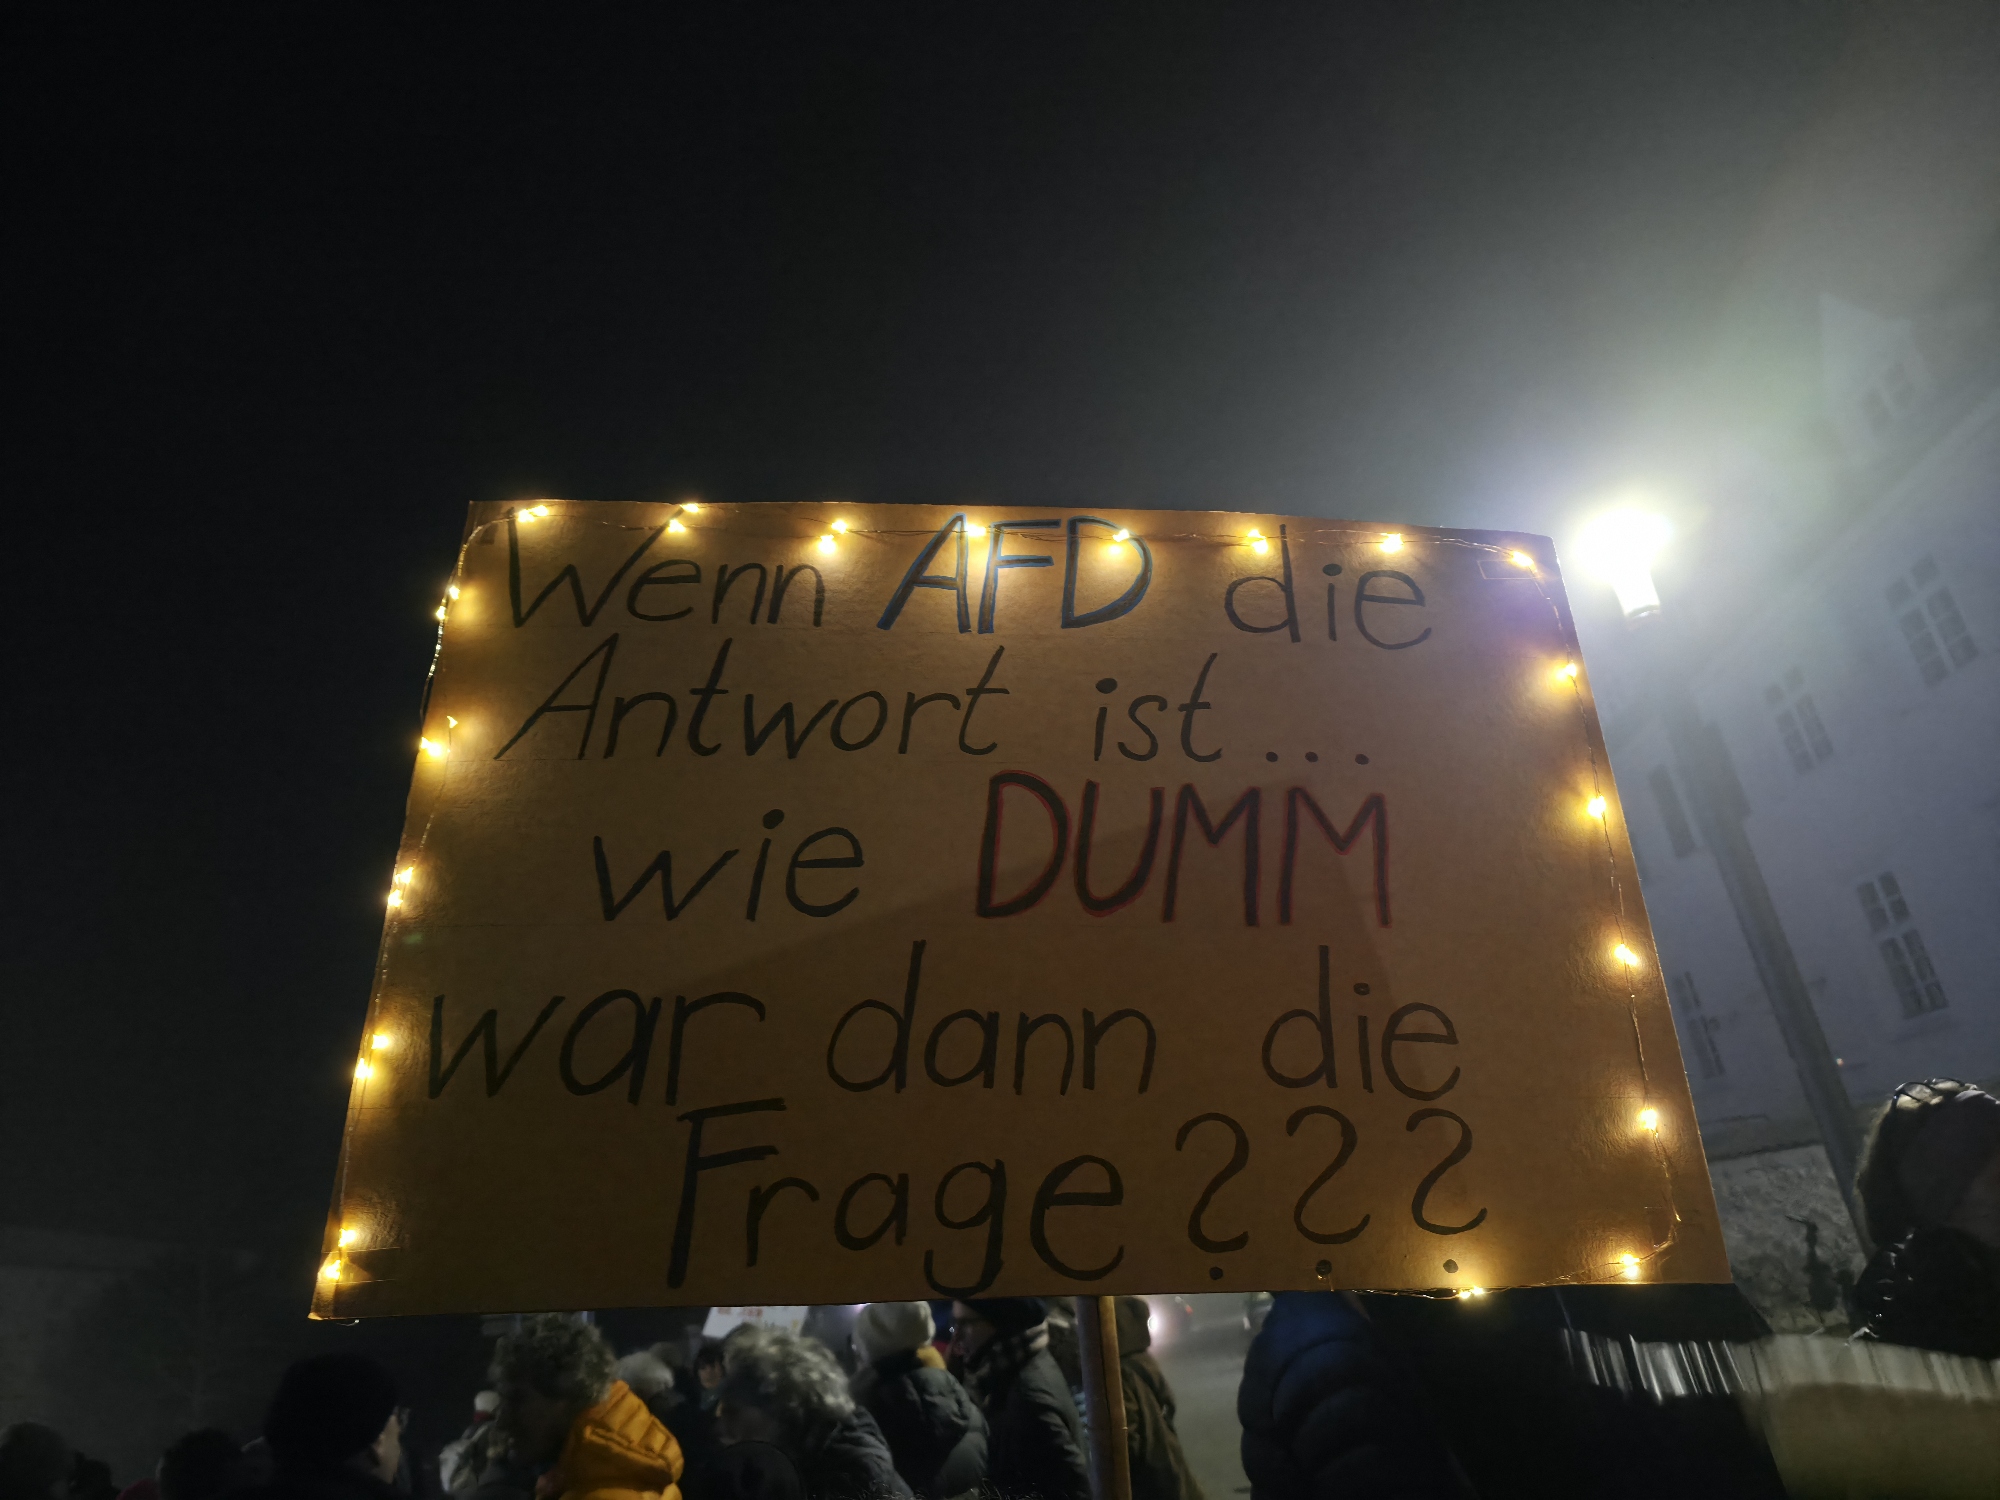 Wenn AFD die
Antwort ist...
wie DUMM
war dann die
Frage???